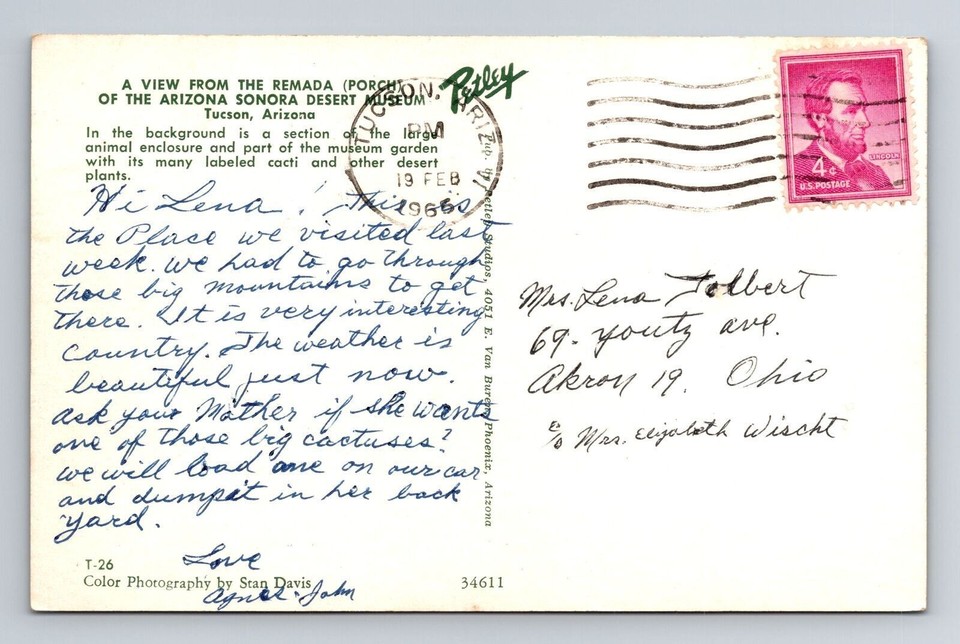 A VIEW FROM THE REMADA (PORCH)
OF THE ARIZONA SONORA DESERT MUSEUM
Tucson, Arizona
In the background is a section of the large
animal enclosure and part of the museum garden
with its many labeled cacti and other desert
plants.
Hi Lena, ! This is
the Place we visited last
week. we had to go through
those big mountains to get
there. It is very interesting
Country. The weather is
beautiful just now.
Ask your Mother if she wants
one of those big cactuses?
we will load one on our car
and dump it in her back
yard.
Love
Agnes - John
T-26
Color Photography by Stan Davis
34611
Petley
Pub. by Petley Studios, 4051 E. Van Buren, Phoenix, Arizona
TUCSON, ARIZ
PM
19 FEB
1966
LINCOLN
4¢
U.S. POSTAGE
Mrs. Lena Tolbert
69. Youtz ave.
Akron 19, Ohio
c/o Mrs. Elizabeth Wischt